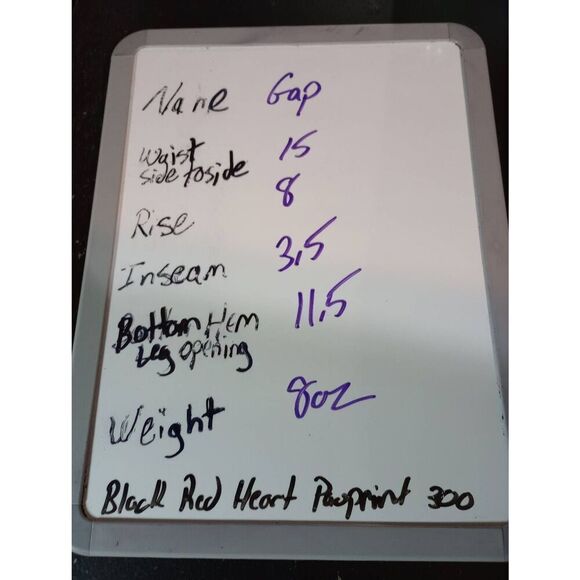 Name Gap
Waist 15
side to side 8
Rise
Inseam 3,5
Bottom Hem 11.5
Leg opening
Weight 8oz
Black Red Heart Pawprint 300